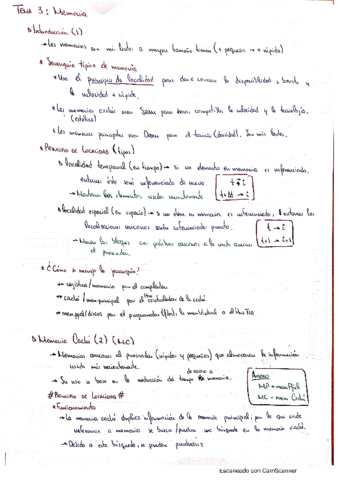 Tema 3: Memoria
Introducción (1)
→ Las memorias son más lentas a mayor tamaño tienen (+ pequeña → + rápida)
* Jerarquía típica de memoria
→ Usa el principio de localidad para
y la velocidad + rápida.
→ Las memorias cachés son Sram para hacer competitiva la velocidad y la tecnología.
(estática)
→ Las memorias principales son Dram para el tamaño (densidad). Son más lentas.
* Principio de Localidad (tipos)
localidad temporal (en tiempo) → si un elemento en memoria es referenciado,
entonces éste será referenciado de nuevo.
t → i
t+Δt → i
→ Mantener los elementos usados recientemente
localidad espacial (en espacio) → si un ítem en memoria es referenciado, entonces las
localizaciones cercanas serán referenciadas pronto.
t → i
t+1 → i+1
→ Mover los bloques con palabras cercanas a la
el procesador.
* ¿Cómo se maneja la jerarquía?
→ registros/memoria por el compilador
→ caché/mem.principal por el controlador de la caché.
→ mem.ppal/discos por el programador
Memoria Caché (2) (MC)
→ Memorias cercanas al procesador (rápidas y pequeñas) que almacenan la información
usada más recientemente.
de acceso a
→ Su uso se basa en la reducción del tiempo memoria.
Anexo
MP → mem Ppal
MC → mem Caché
# Principio de Localidad #
* Funcionamiento
→ La memoria caché duplica información de la memoria principal, por lo que cada
referencia a memoria se busca/produce una búsqueda en la memoria caché.
→ Debido a esta búsqueda se pueden producir
Escaneado con CamScanner